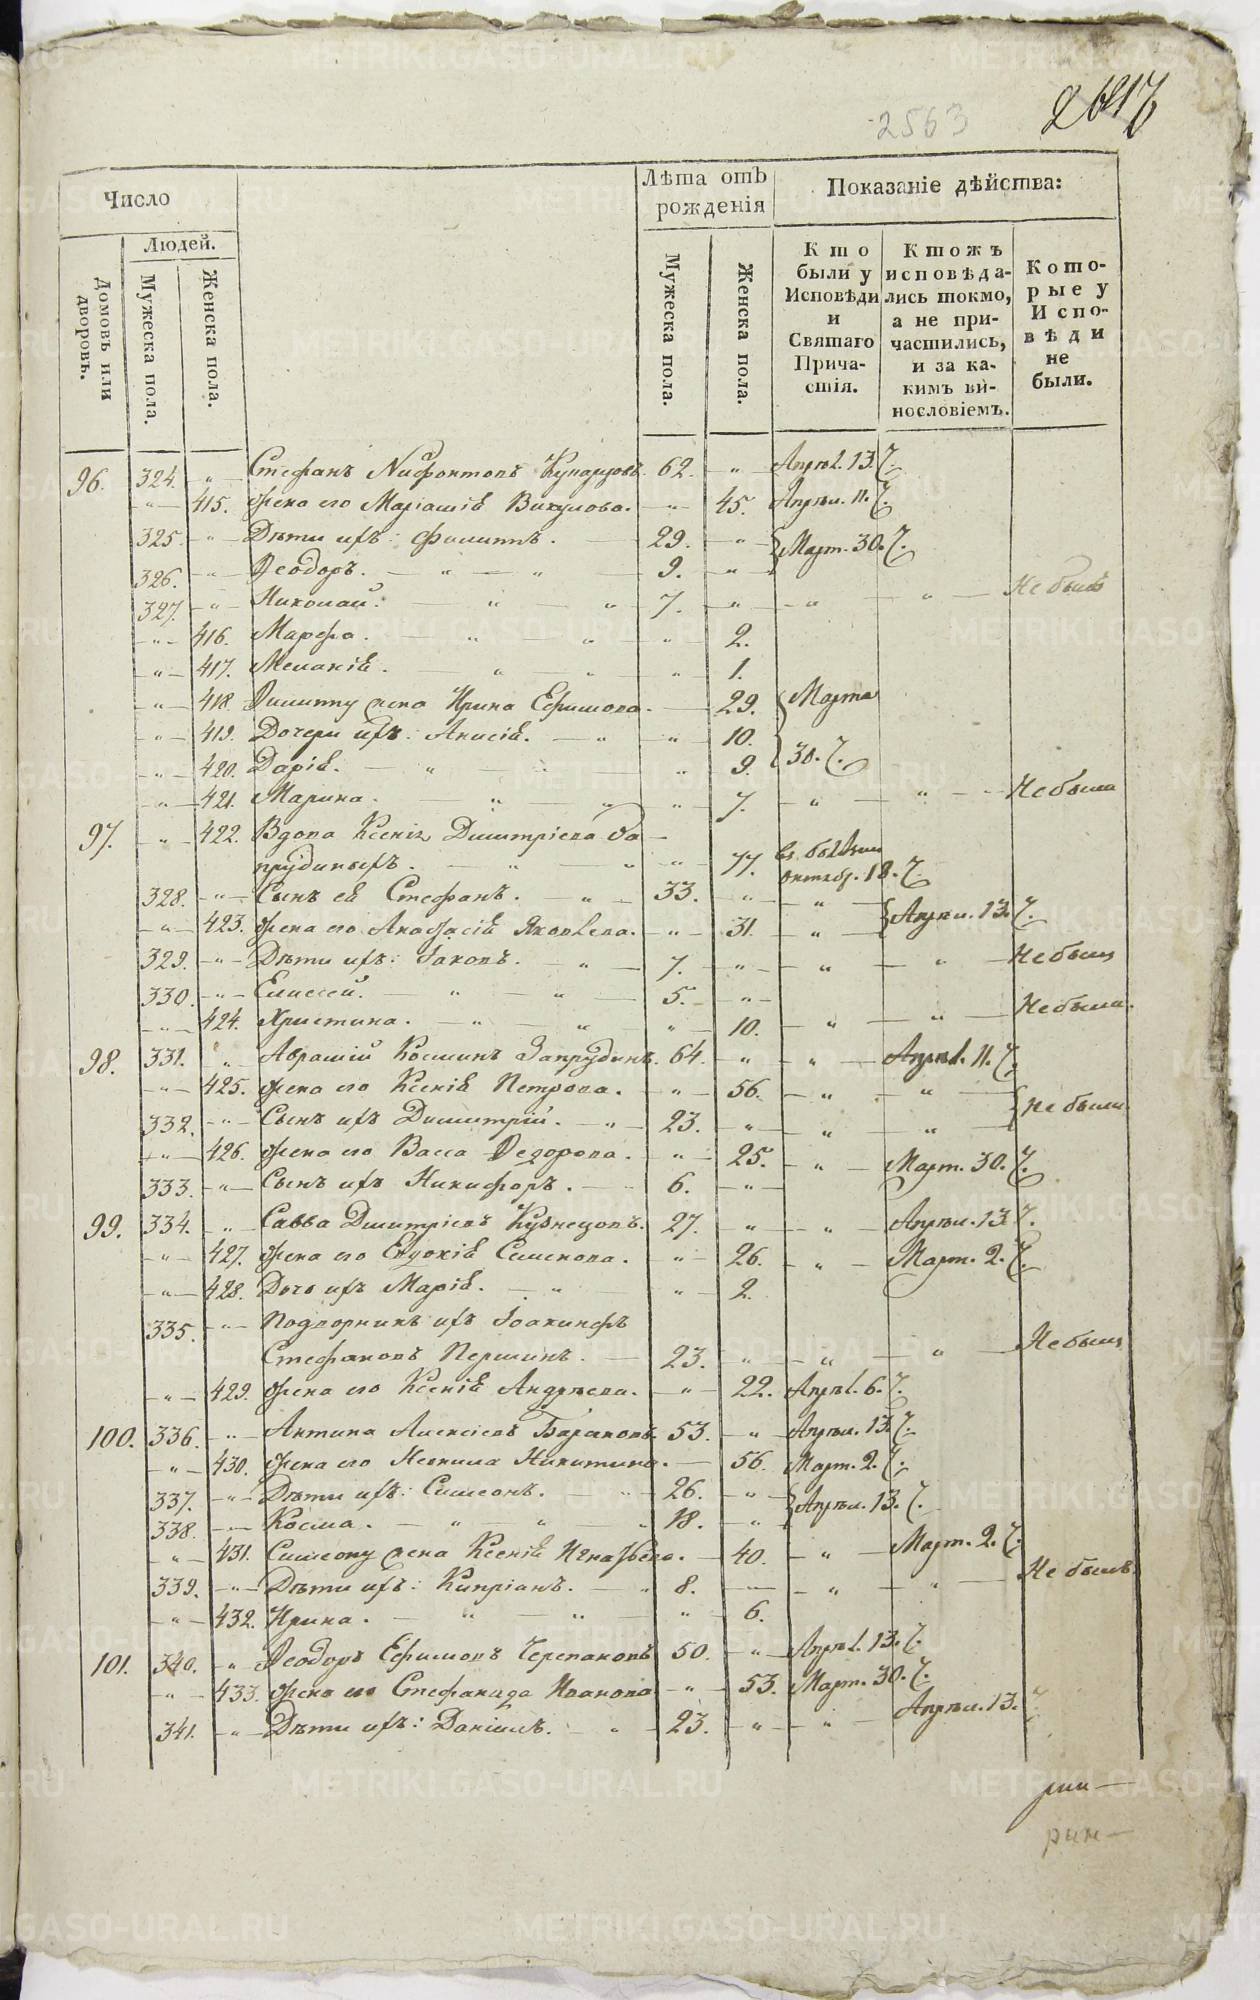 2563
Число
Лѣта отъ рожденія
Показаніе дѣйства:
Домовъ или дворовъ.
Людей.
Мужеска пола.
Женска пола.
Мужеска пола.
Женска пола.
Кто были у Исповѣди и Святаго Причастія.
Ктожъ исповѣдались токмо, а не причастились, и за какимъ винословіемъ.
Которые у Исповѣди не были.
96. 324. „ Стефанъ Нифонтовъ 62. „ Апрѣл. 13.
„ 415. жена его Маріамія Викулова. „ 45. Апрѣл. 11.
325. „ Дѣти ихъ: Филиппъ. 29. „ Март. 30.
326. „ Ѳеодоръ. „ „ 9. „
327. „ Николай. „ „ 7. „ „ „ Не былъ
„ 416. Марѳа. „ „ „ 2.
„ 417. Меланія. „ „ „ 1.
„ 418. Филиппу жена Ирина Ефимова. 29. Марта
„ 419. Дочери ихъ: Анисія. „ „ 10.
„ 420. Дарія. „ „ „ 9. 30.
„ 421. Марина. „ „ „ 7. „ „ Не была
97. „ 422. Вдова Ксенія Димитріева За
прудиныхъ. „ „ „ 77. въ болѣзни октябр. 18.
328. „ Сынъ ея Стефанъ. „ 33. „ „ Апрѣл. 13.
„ 423. жена его Анафасія Яковлева. „ 31. „
329. „ Дѣти ихъ: Іаковъ. „ 7. „ „ „ Не были
330. „ Елисей. „ „ 5. „
„ 424. Христина. „ „ „ 10. „ „ Не была.
98. 331. „ Авраmій Косминъ Запрудинъ. 64. „ „ Апрѣл. 11.
„ 425. жена его Ксенія Петрова. „ 56. „ „
332. „ Сынъ ихъ Димитрій. „ 23. „ „ „ Не были.
„ 426. жена его Васса Ѳедорова. „ 25. „ Март. 30.
333. „ Сынъ ихъ Никифоръ. 6. „
99. 334. „ Савва Дмитріевъ Кузнецовъ. 27. „ „ Апрѣл. 13.
„ 427. жена его Евдокія Симонова. „ 26. „ Март. 2.
„ 428. Дочь ихъ Марія. „ „ 2.
335. „ Подворникъ ихъ Іоакинфъ
Стефановъ Першинъ. 23. „ „ „ Не былъ
„ 429. жена его Ксенія Андреева. „ 22. Апрѣл. 6.
100. 336. „ Антипа Алексіевъ Барановъ. 53. „ Апрѣл. 13.
„ 430. жена его Неонила Никитина. 56. Март. 2.
337. „ Дѣти ихъ: Симеонъ. „ 26. „ Апрѣл. 13.
338. Косма. „ „ „ 18. „
„ 431. Симеону жена Ксенія Игнатьева. 40. „ Март. 2.
339. „ Дѣти ихъ: Кипріанъ. „ 8. „ „ Не былъ.
„ 432. Ирина. „ „ „ 6.
101. 340. „ Ѳеодоръ Ефимовъ Черепановъ 50. „ Апрѣл. 13.
„ 433. жена его Стефанида Иванова „ 53. Март. 30.
341. „ Дѣти ихъ: Даніилъ. „ 23. „ „ Апрѣл. 13.
METRIKI.GASO-URAL.RU